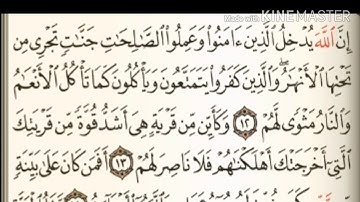 Made with KINEMASTER
إِنَّ ٱللَّهَ يُدْخِلُ ٱلَّذِينَ ءَامَنُوا۟ وَعَمِلُوا۟ ٱلصَّٰلِحَٰتِ جَنَّٰتٍ تَجْرِى مِن
تَحْتِهَا ٱلْأَنْهَٰرُ وَٱلَّذِينَ كَفَرُوا۟ يَتَمَتَّعُونَ وَيَأْكُلُونَ كَمَا تَأْكُلُ ٱلْأَنْعَٰمُ
وَٱلنَّارُ مَثْوًى لَّهُمْ ١٢ وَكَأَيِّن مِّن قَرْيَةٍ هِىَ أَشَدُّ قُوَّةً مِّن قَرْيَتِكَ
ٱلَّتِىٓ أَخْرَجَتْكَ أَهْلَكْنَٰهُمْ فَلَا نَاصِرَ لَهُمْ ١٣ أَفَمَن كَانَ عَلَىٰ بَيِّنَةٍ